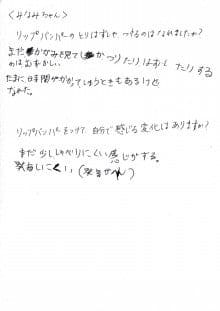 〈みなみちゃん〉
リップバンパーのとりはずしや、つけるのはなれましたか?
まだかがみを見てつけたりはずしたりする
のはむずかしい。
たまに時間がかかってしまうときもあるけど
なれた。
リップバンパーをつけて自分で感じる変化はありますか?
まだ少ししゃべりにくい感じがする。
発毎しにくい(発音が)